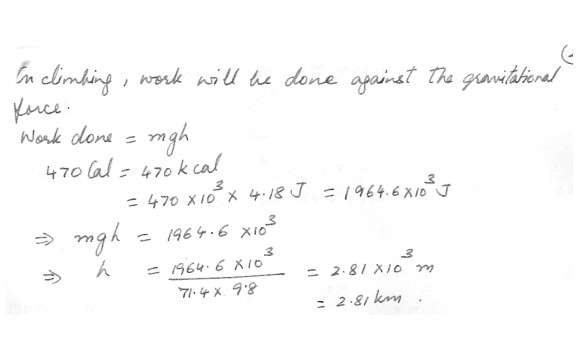 In climbing, work will be done against the gravitational
force.
Work done = mgh
470 Cal = 470 kcal
= 470 × 10³ × 4.18 J = 1964.6 × 10³ J
⇒ mgh = 1964.6 × 10³
⇒ h = 1964.6 × 10³ / 71.4 × 9.8 = 2.81 × 10³ m
= 2.81 km.